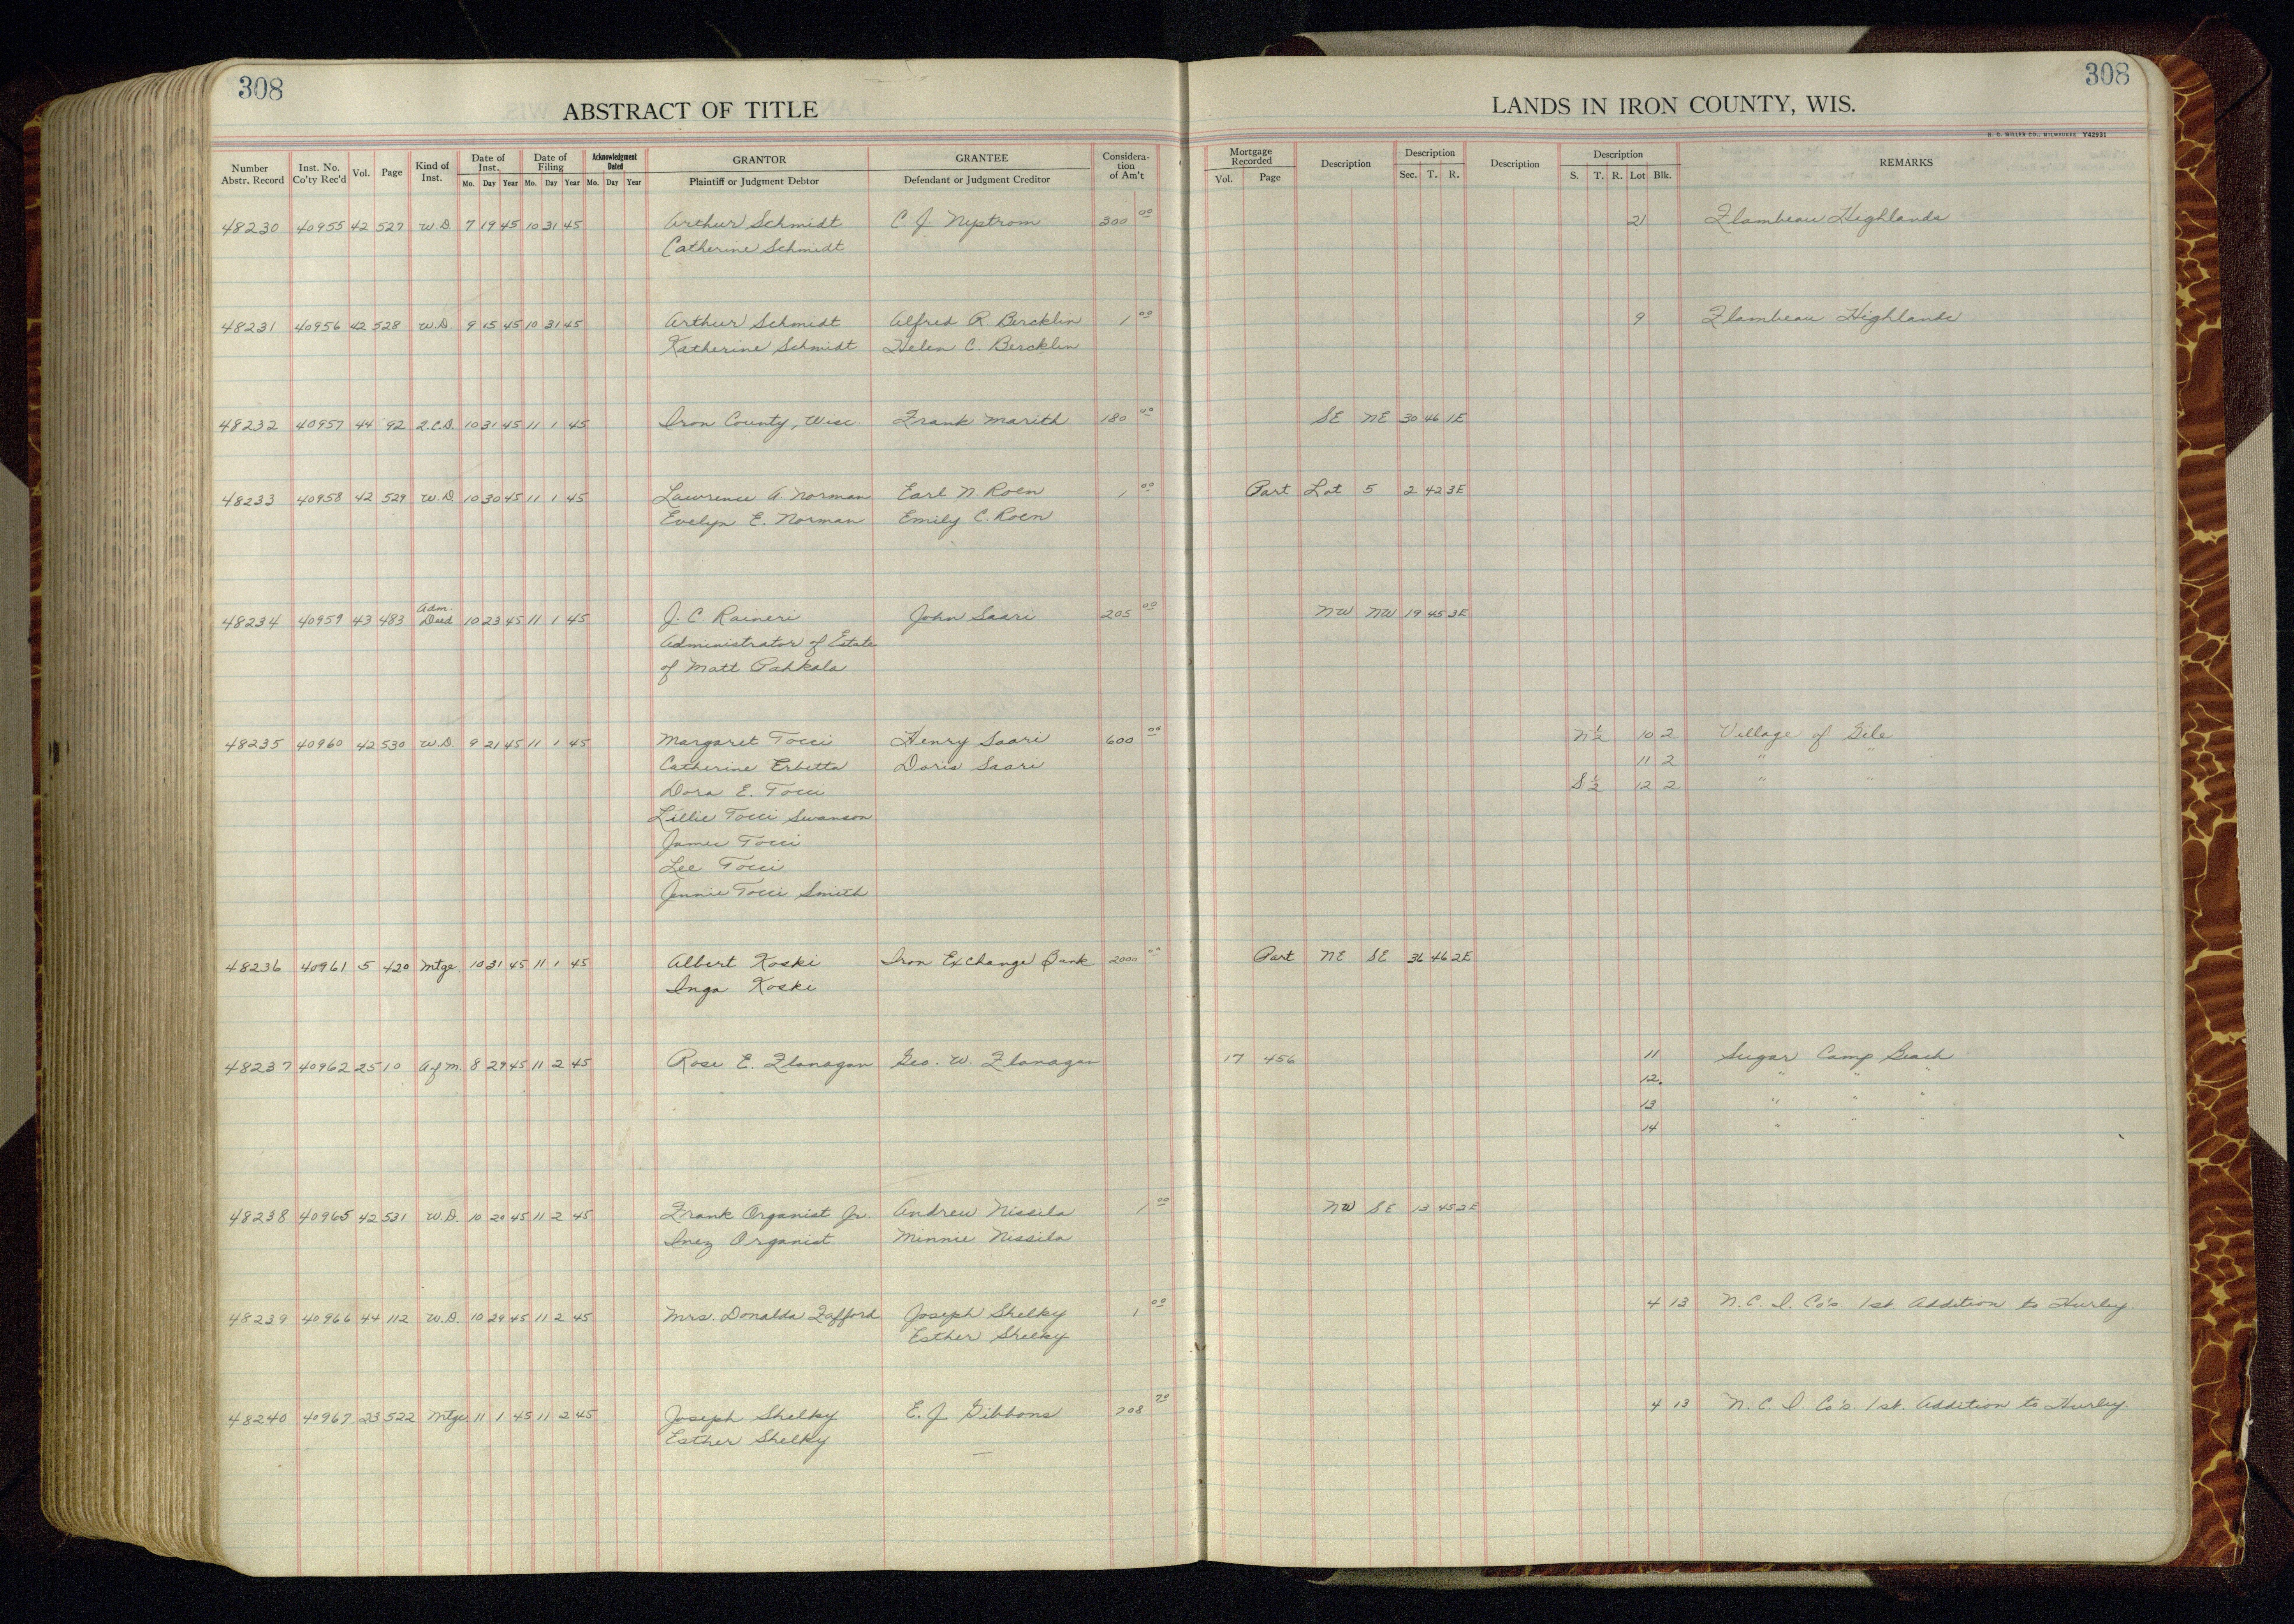 308
308
ABSTRACT OF TITLE
LANDS IN IRON COUNTY, WIS.
H. C. MILLER CO., MILWAUKEE Y42931
Number Abstr. Record Inst. No. Co'ty Rec'd Vol. Page Kind of Inst. Date of Inst. Mo. Day Year Date of Filing Mo. Day Year Acknowledgment Dated Mo. Day Year GRANTOR Plaintiff or Judgment Debtor GRANTEE Defendant or Judgment Creditor Considera- tion of Am't Mortgage Recorded Vol. Page Description Description Sec. T. R. Description Description S. T. R. Lot Blk. REMARKS
48230 40955 42 527 W.D. 7 19 45 10 31 45 Arthur Schmidt C. J. Nystrom 300 00 21 Flambeau Highlands
Catherine Schmidt
48231 40956 42 528 W.D. 9 15 45 10 31 45 Arthur Schmidt Alfred R. Bercklin 1 00 9 Flambeau Highlands
Katherine Schmidt Helen C. Bercklin
48232 40957 44 92 Q.C.D. 10 31 45 11 1 45 Iron County, Wisc. Frank Marith 180 00 SE NE 30 46 1E
48233 40958 42 529 W.D. 10 30 45 11 1 45 Lawrence A. Norman Earl N. Roen 1 00 Part Lot 5 2 42 3E
Evelyn E. Norman Emily C. Roen
48234 40959 43 483 Adm. Deed 10 23 45 11 1 45 J. C. Raineri John Saari 205 00 NW NW 19 45 3E
Administrator of Estate
of Matt Pahkala
48235 40960 42 530 W.D. 9 21 45 11 1 45 Margaret Tocci Henry Saari 600 00 N½ 10 2 Village of Gile
Catherine Erbetta Doris Saari 11 2 " "
Dora E. Tocci S½ 12 2 " "
Lillie Tocci Swanson
James Tocci
Lee Tocci
Jennie Tocci Smith
48236 40961 5 420 Mtge 10 31 45 11 1 45 Albert Koski Iron Exchange Bank 2000 00 Part NE SE 36 46 2E
Inga Koski
48237 40962 25 10 A of M. 8 29 45 11 2 45 Rose E. Flanagan Geo. W. Flanagan 17 456 11 Sugar Camp Beach
12. " " "
13 " " "
14 " " "
48238 40965 42 531 W.D. 10 20 45 11 2 45 Frank Organist Jr. Andrew Nissila 1 00 NW SE 13 45 2E
Inez Organist Minnie Nissila
48239 40966 44 112 W.D. 10 29 45 11 2 45 Mrs. Donalda Fafford Joseph Shelky 1 00 4 13 N. C. I. Co's. 1st. Addition to Hurley.
Esther Shelky
48240 40967 23 522 Mtge. 11 1 45 11 2 45 Joseph Shelky E. J. Gibbons 708 70 4 13 N. C. I. Co's. 1st. Addition to Hurley.
Esther Shelky